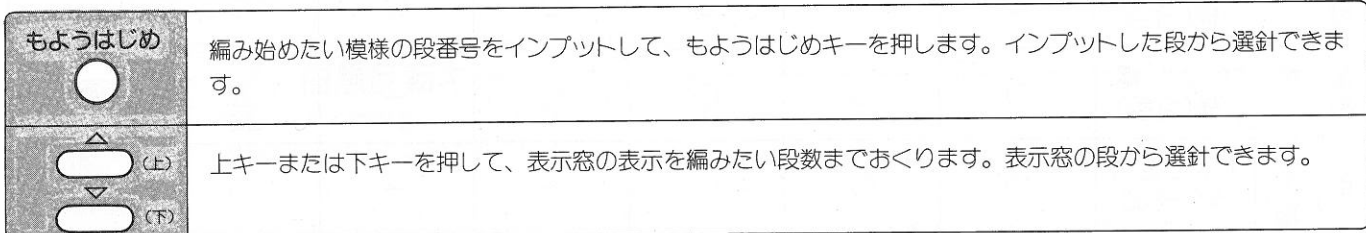 もようはじめ
編み始めたい模様の段番号をインプットして、もようはじめキーを押します。インプットした段から選針できま
す。
△
(上)
上キーまたは下キーを押して、表示窓の表示を編みたい段数までおくります。表示窓の段から選針できます。
▽
(下)